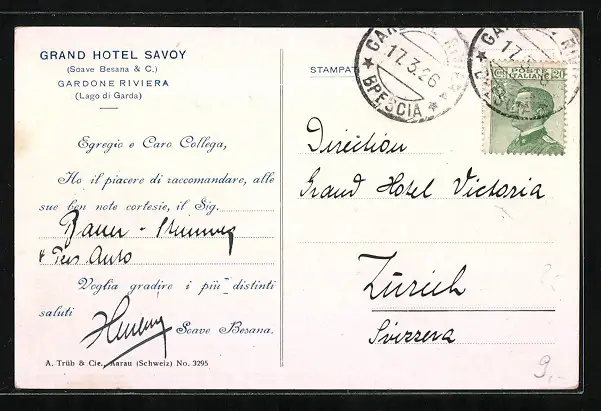 GRAND HOTEL SAVOY
(Soave Besana & C.)
GARDONE RIVIERA
(Lago di Garda)
Egregio e Caro Collega,
Ho il piacere di raccomandare, alle
sue ben note cortesie, il Sig.
Bauer -
Auto
Voglia gradire i più distinti
saluti
Soave Besana.
A. Trüb & Cie., Aarau (Schweiz) No. 3295
STAMPAT
17.3.26
★ BRESCIA ★
17.3
POSTE
ITALIANE
20
Direction
Grand Hotel Victoria
Zürich
Svizzera
9.-